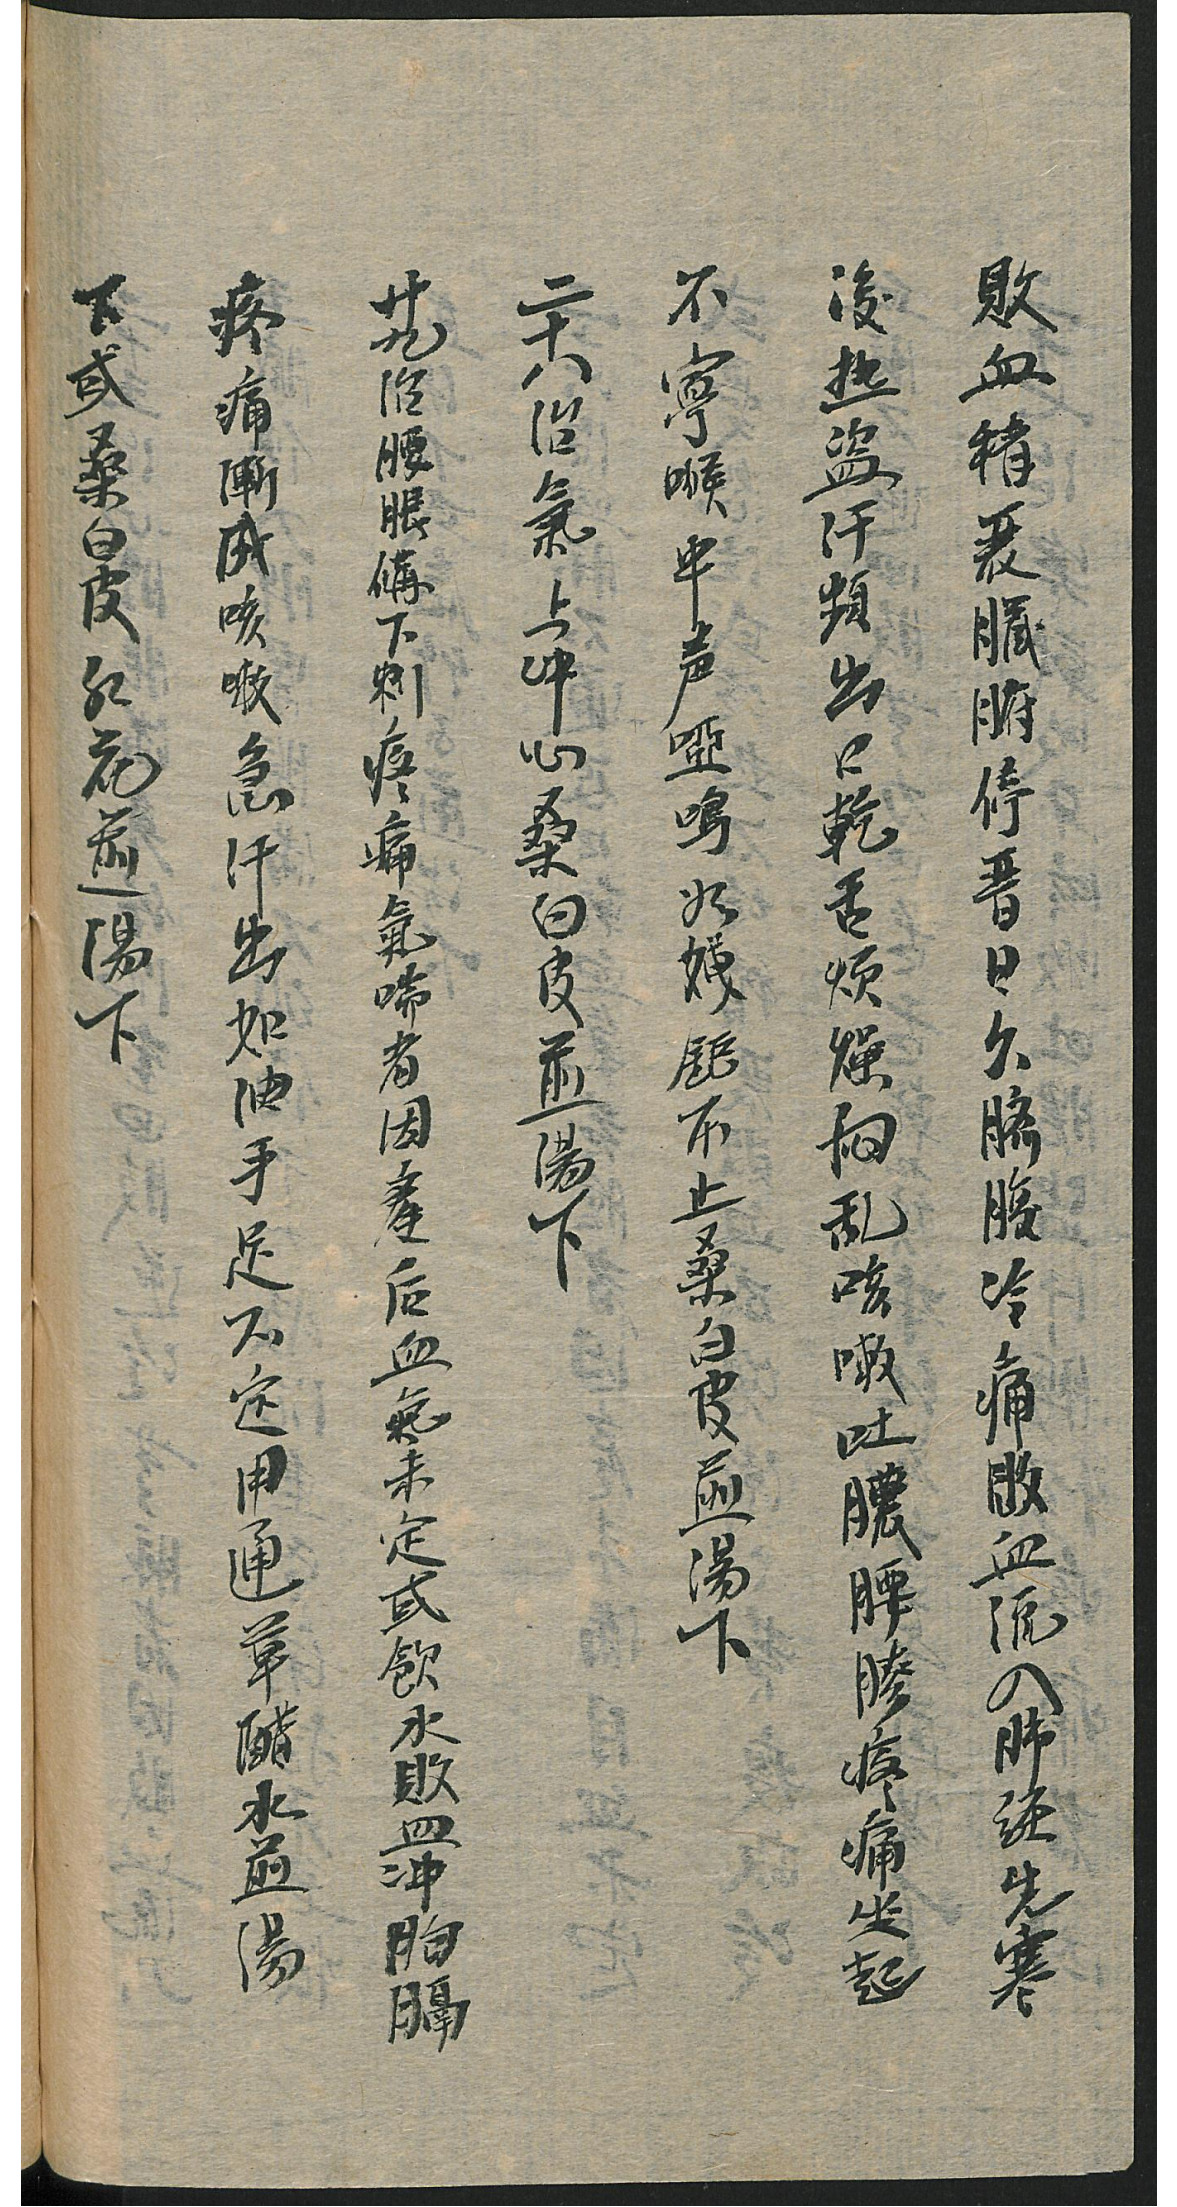 敗血積聚臟腑停晋日久臍腹冷痛敗血流入肺經先寒
後热盗汗頻出口乾舌煩燥悶乱咳嗽吐膿腰膝疼痛坐起
不寧喉中声啞鳴如拽鋸不止桑白皮煎湯下
二十八治氣上冲心桑白皮煎湯下
廿九治腰眼備下刺疼痛氣喘者因產后血氣未定或飲水敗血冲胸膈
疼痛漸成咳嗽急汗出如油手足不定用通草醋水煎湯
下或桑白皮紅花煎湯下